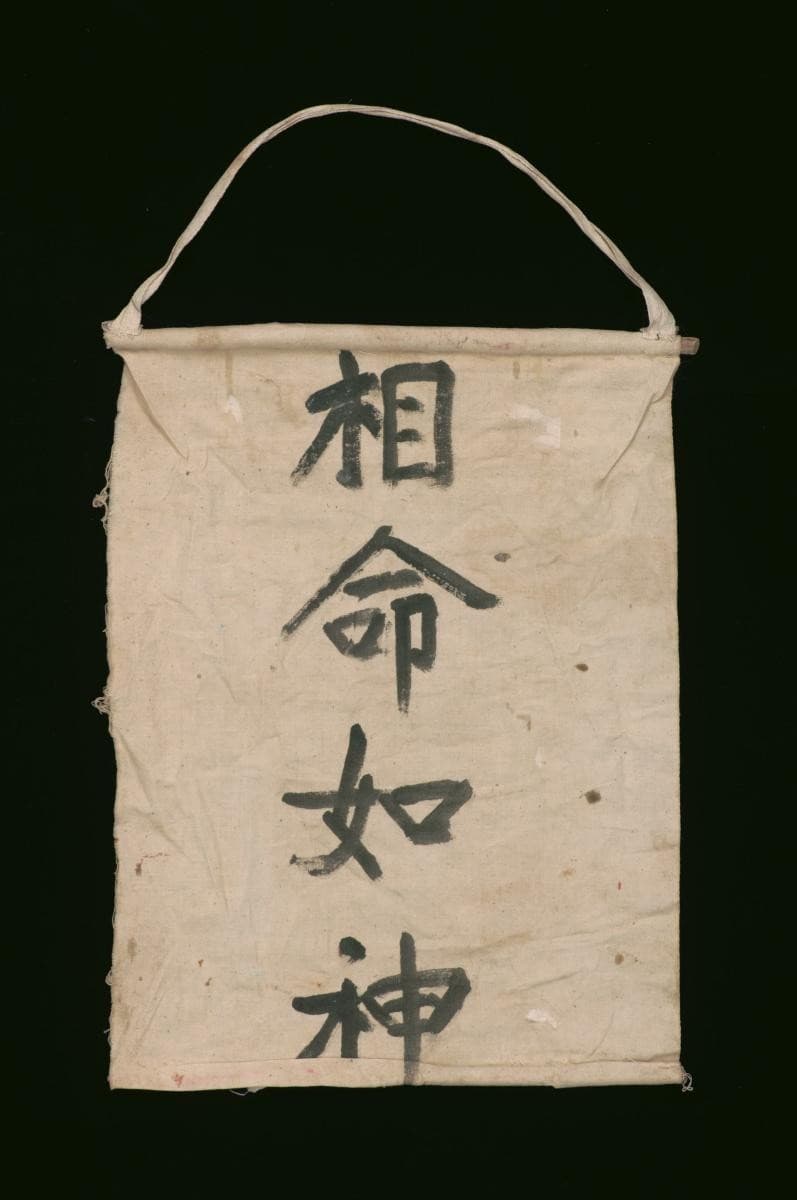 相命如神